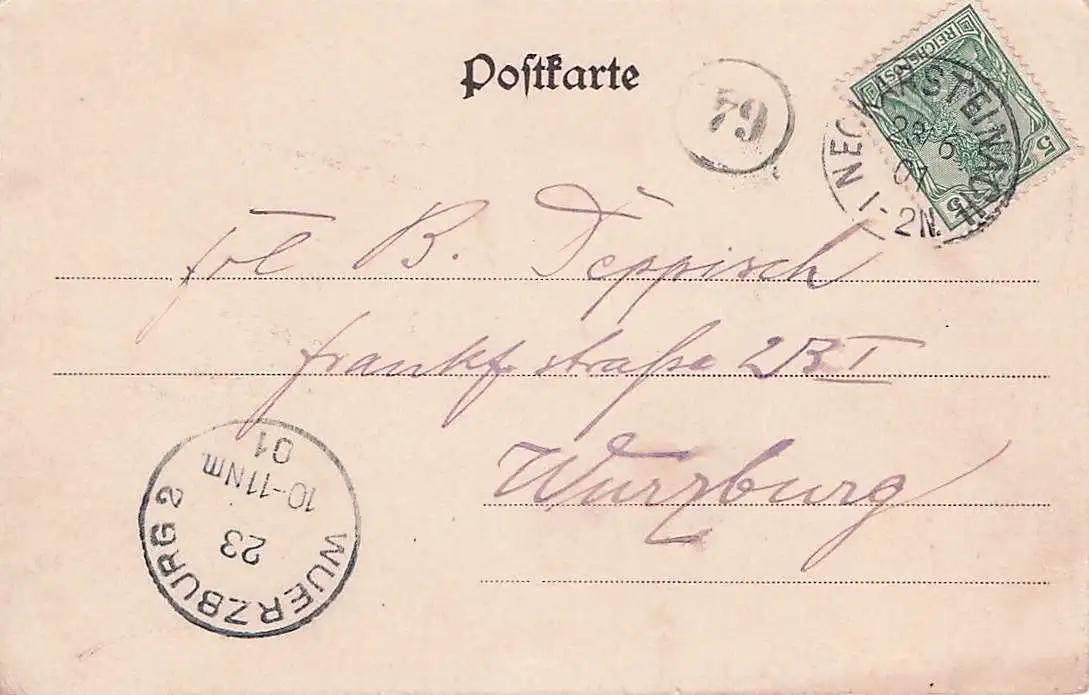 Postkarte
79
REICHSPOST
5 5
NECKARSTEINACH
1-2N.
Frl B. Teppisch
Frankf. straße 2 B I
Würzburg
WUERZBURG 2
23
10-11Nm.
01